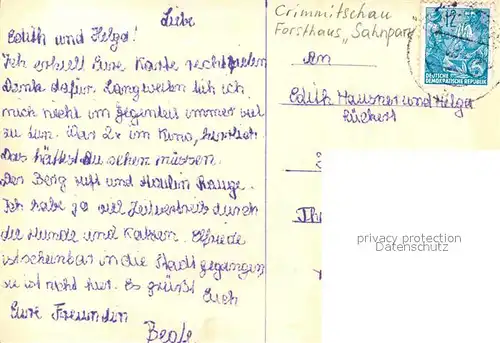 Liebe
Edith und Helga!
Ich erhielt Eure Karte recht vielen
Dank dafür. Langweilen tüh ich
mich nicht im gegenteil immer viel
zu tun. War 2x im Kino, herrlich
Das hättest Du sehen müssen.
Der Berg ruft und Moulin Rouge.
Ich habe ja viel Zeitvertreib durch
die Hunde und Katzen. Elfriede
ist scheinbar in die Stadt gegangen
sie ist nicht hier. Es grüßt Euch
Eure Freundin
Crimmitschau
Forsthaus „Sahnpark"
An
Edith Hausner und Helga
Lückert
DEUTSCHE
DEMOKRATISCHE REPUBLIK
5
privacy protection
Datenschutz